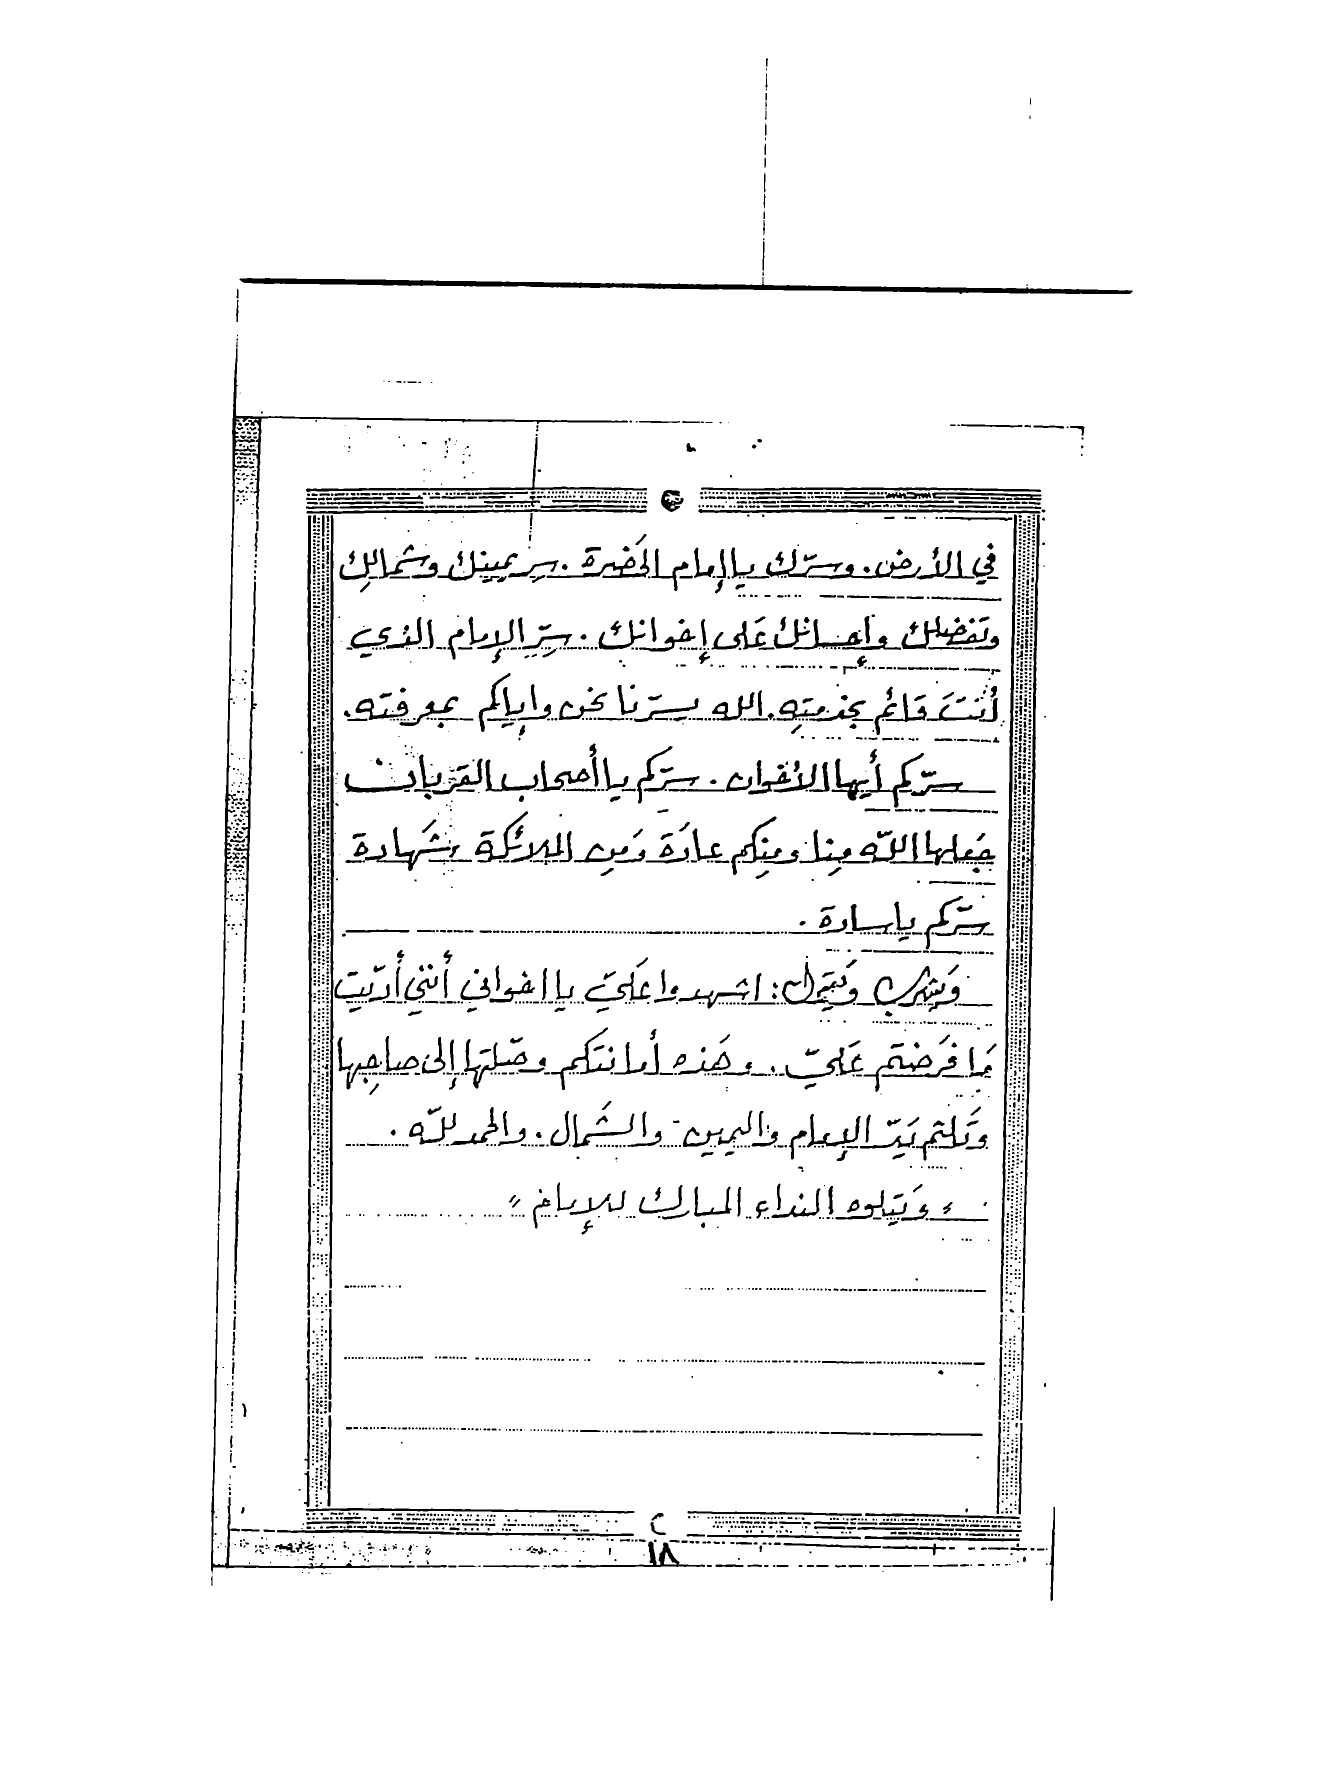 في الأرض. وسرّك يا إمام الحَضرة. سِر يمينك وشمالِك
وتَفضلك وإحسانك عَلى إخوانك. سِرِّ الإمام الذي
أنتَ قَائم بخدمتِهِ. الله يسرّنا نحن وإياكم بمعرفته.
سرّكم أيها الأخوان. سرّكم يا أصحاب القربان
جَعلها اللّه مِنا ومِنكم عادَة وَمِن الملائكة شَهادة
سرّكم يا سادة.
وَيشرب وَيَقول: اشهدوا عَليّ يا اخواني أنني أدّيت
مَا فَرَضتم عَليّ. وهَذه أمانتكم وصّلتها إلى صاحِبها
وَتلثم يَدّ الإمام واليمين والشَمال. والحمد للّه.
" وَيَتلوه النداء المبارك للإمام "
١٨